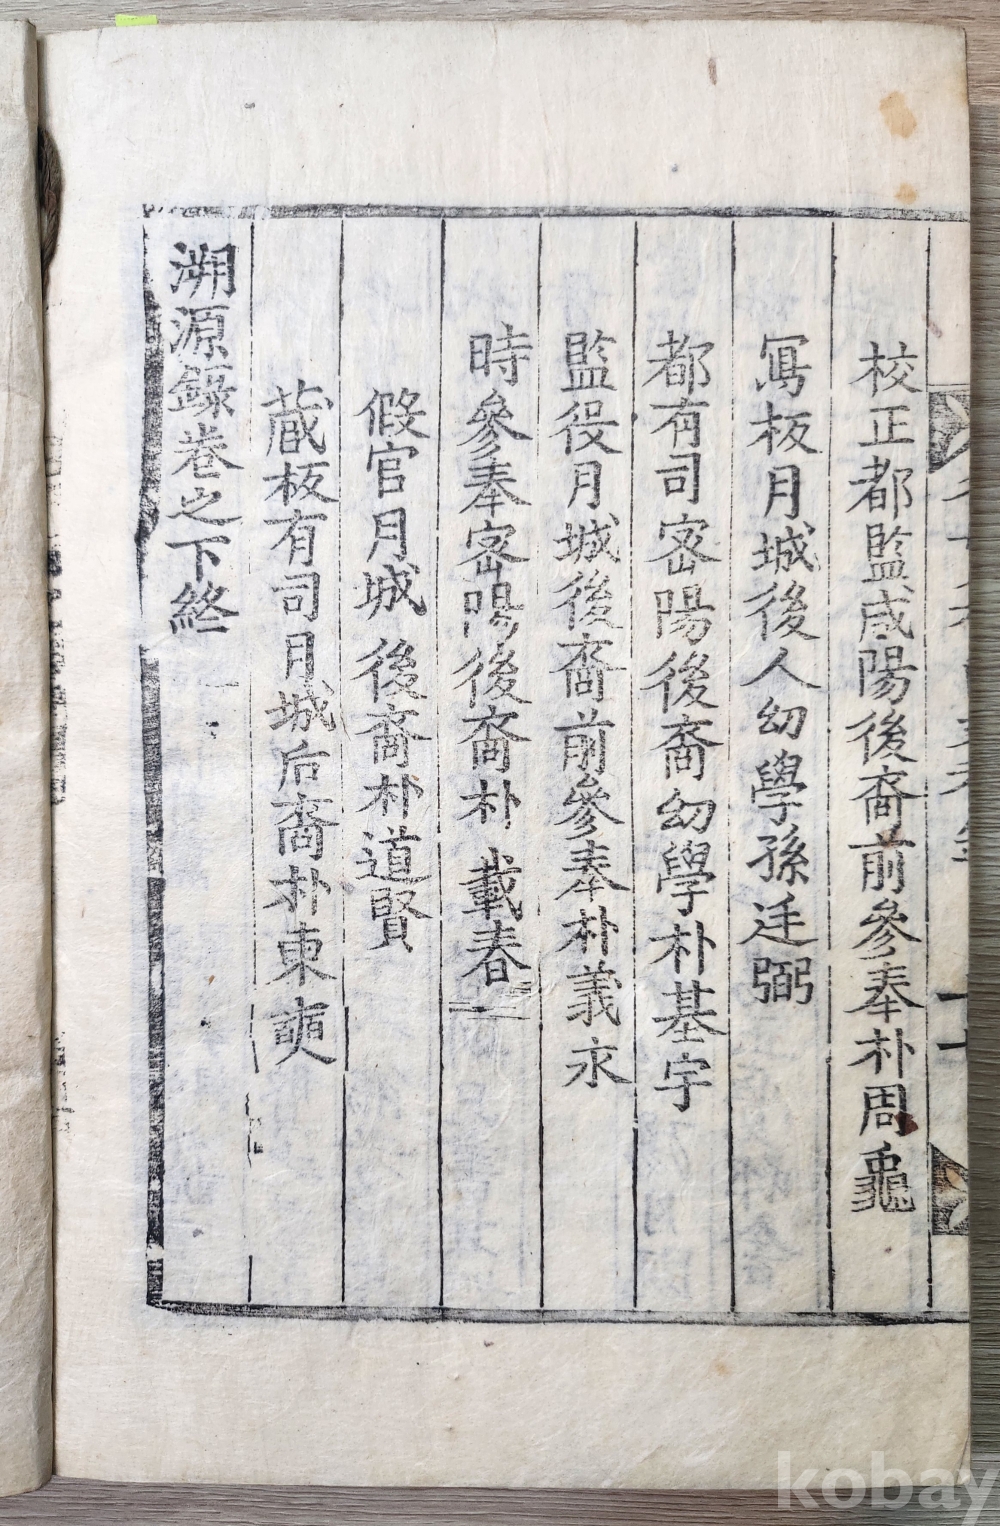 校正都監咸陽後裔前參奉朴周龜
寫板月城後人幼學孫廷弼
都有司密陽後裔幼學朴基宇
監役月城後裔前參奉朴義永
時參奉密陽後裔朴載春
假官月城後裔朴道賢
蔵板有司月城后裔朴東奭
溯源錄卷之下終
kobay